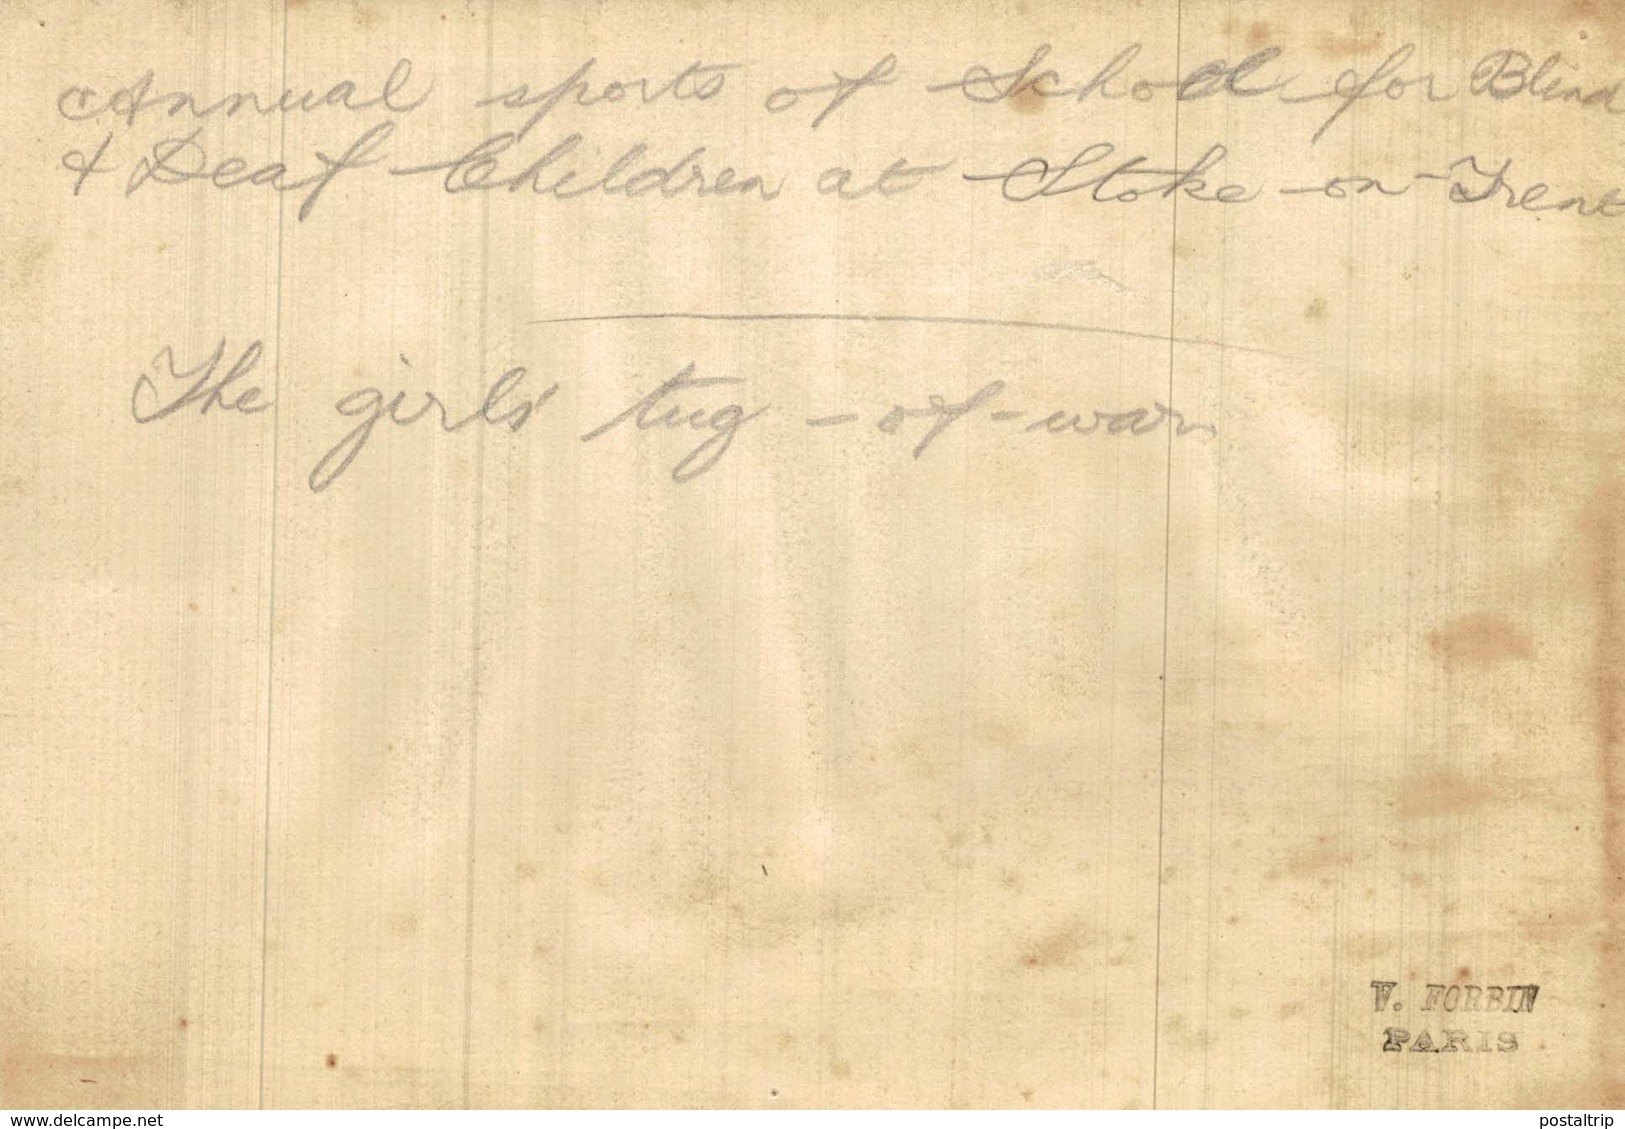 Annual sports of School for Blind
& Deaf Children at Stoke-on-Trent
The girls' tug-of-war.
V. FORBIN
PARIS
www.delcampe.net
postaltrip